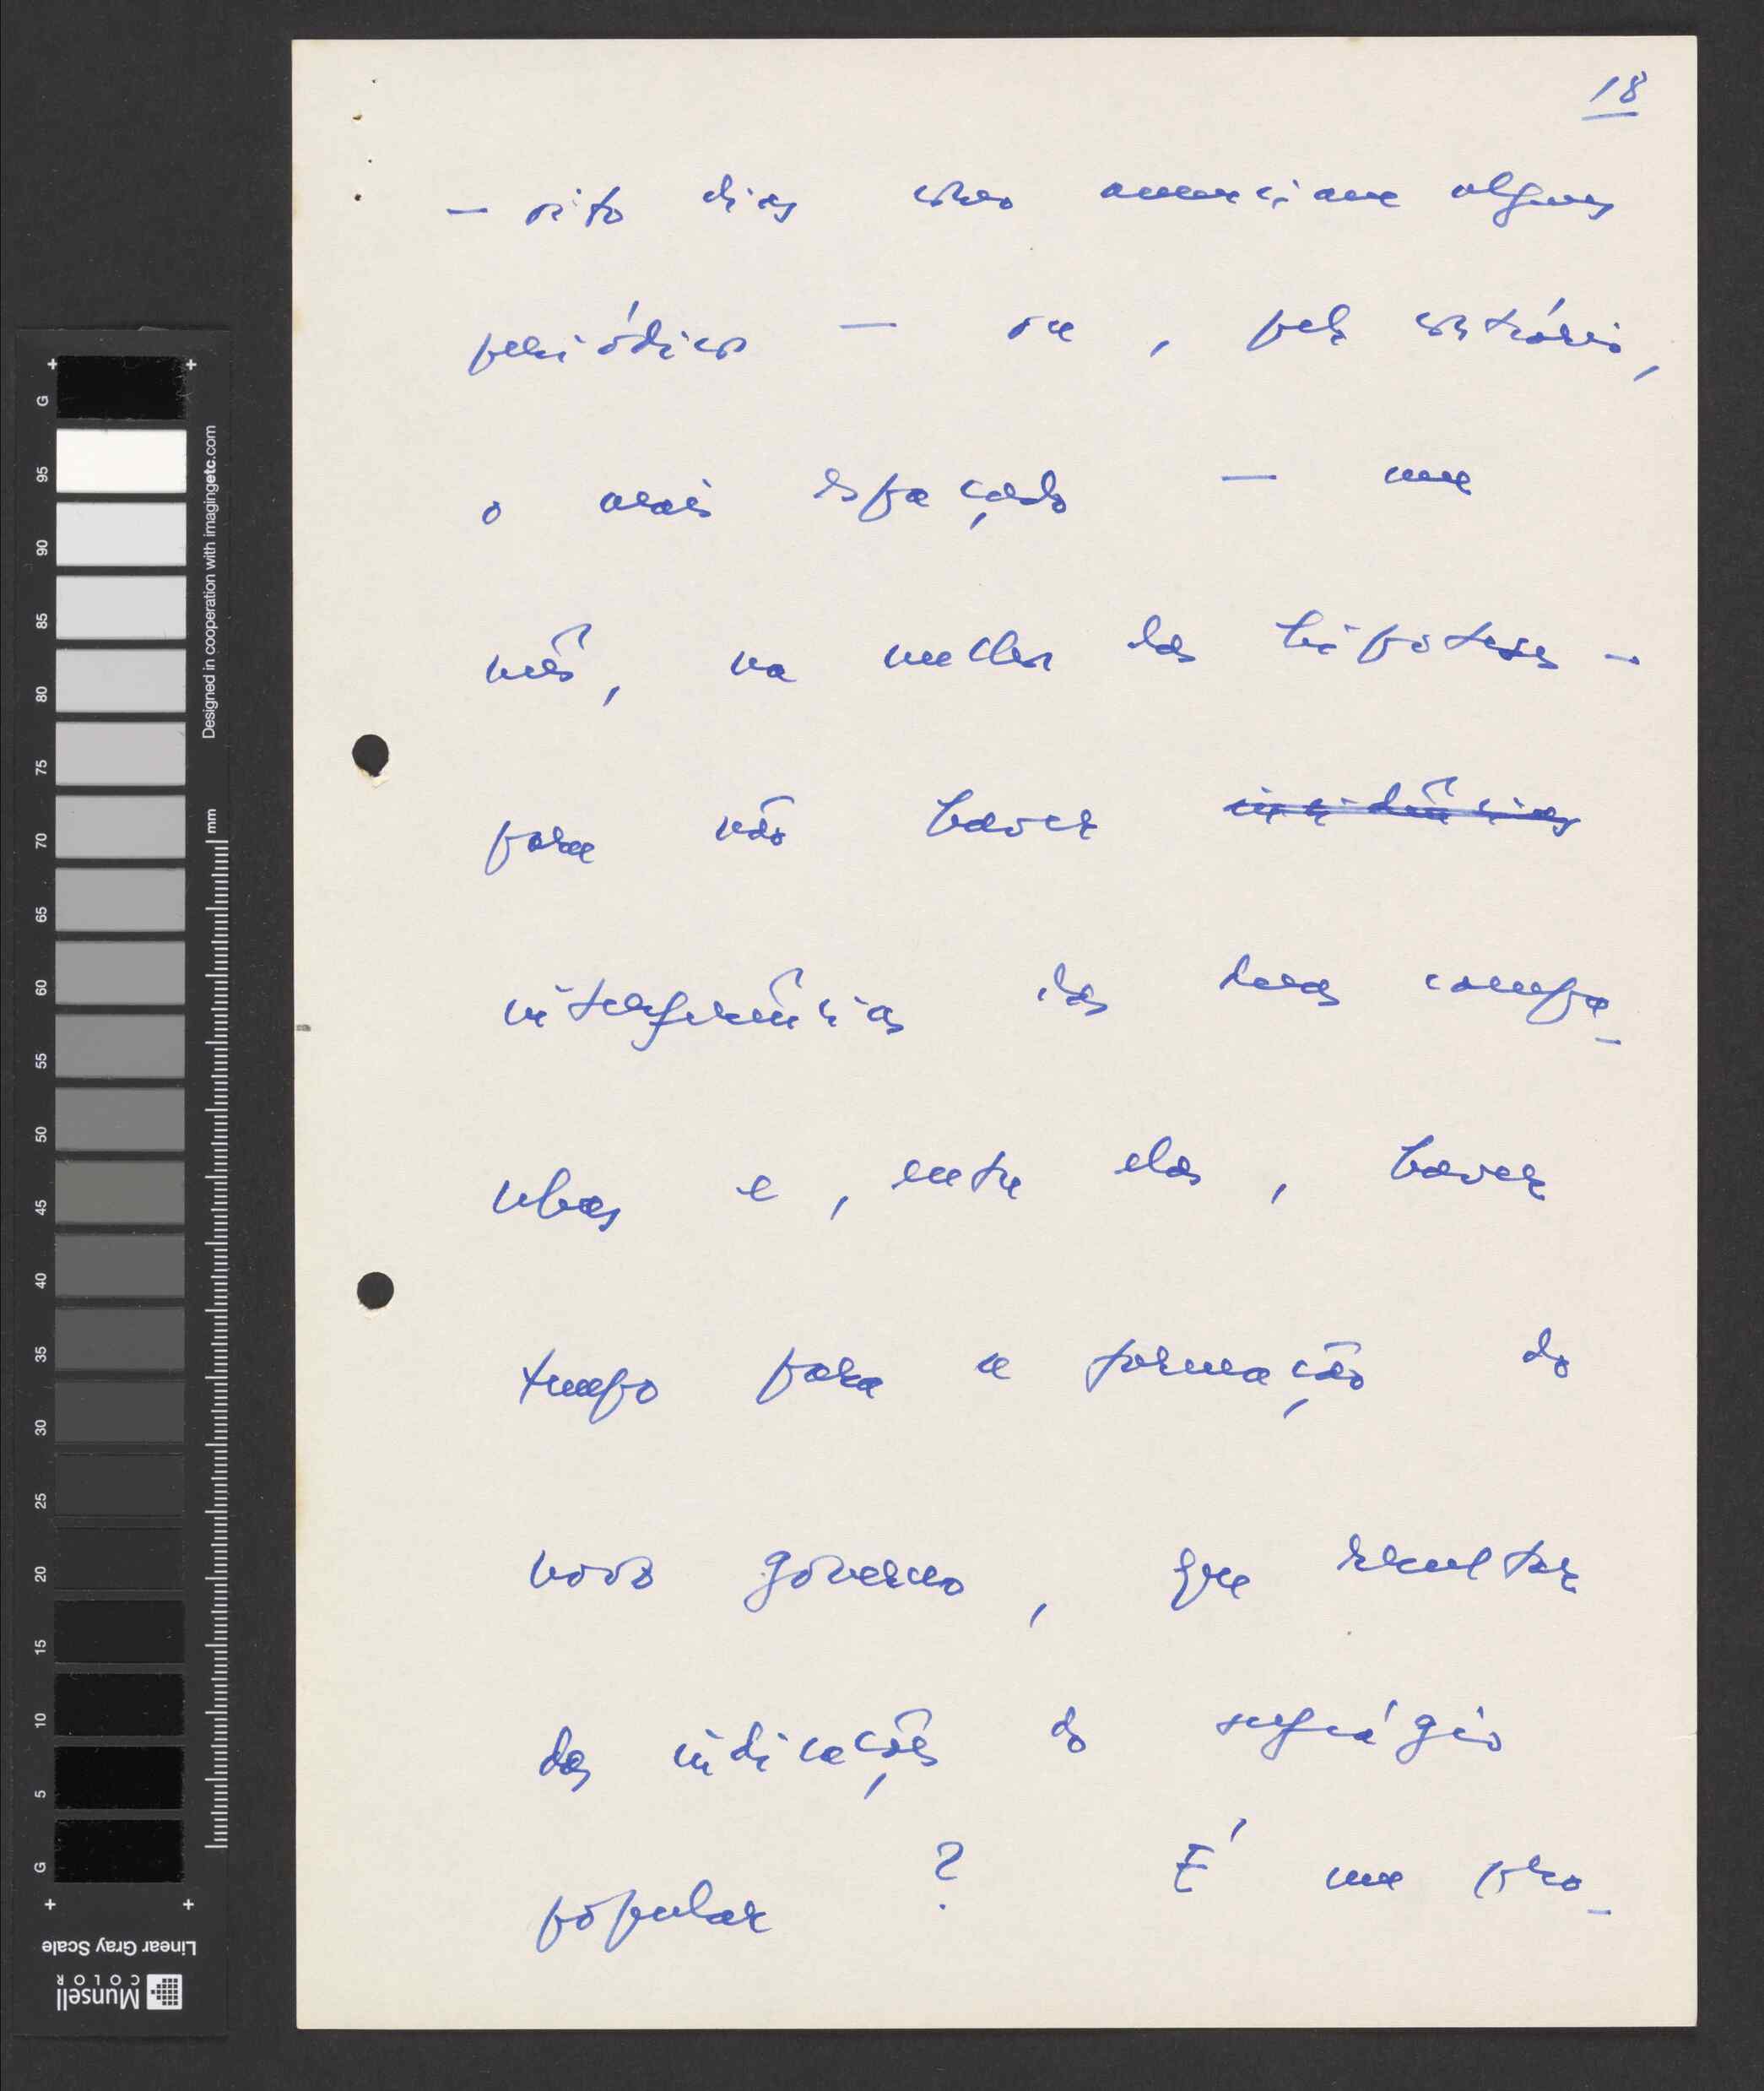 18
— oito dias como anunciam alguns
periódicos — ou, pelo contrário,
o mais espaçado — um
mês, na melhor das hipóteses —
para não haver incidências
interferências das duas campa-
nhas e, entre elas, haver
tempo para a formação do
novo governo, que resultar
das indicações do sufrágio
popular ? É um pro-
G
95
90
85
80
75
70
65
60
55
50
45
40
35
30
25
20
15
10
5
G
Designed in cooperation with imagingetc.com
mm
Linear Gray Scale
Munsell
COLOR